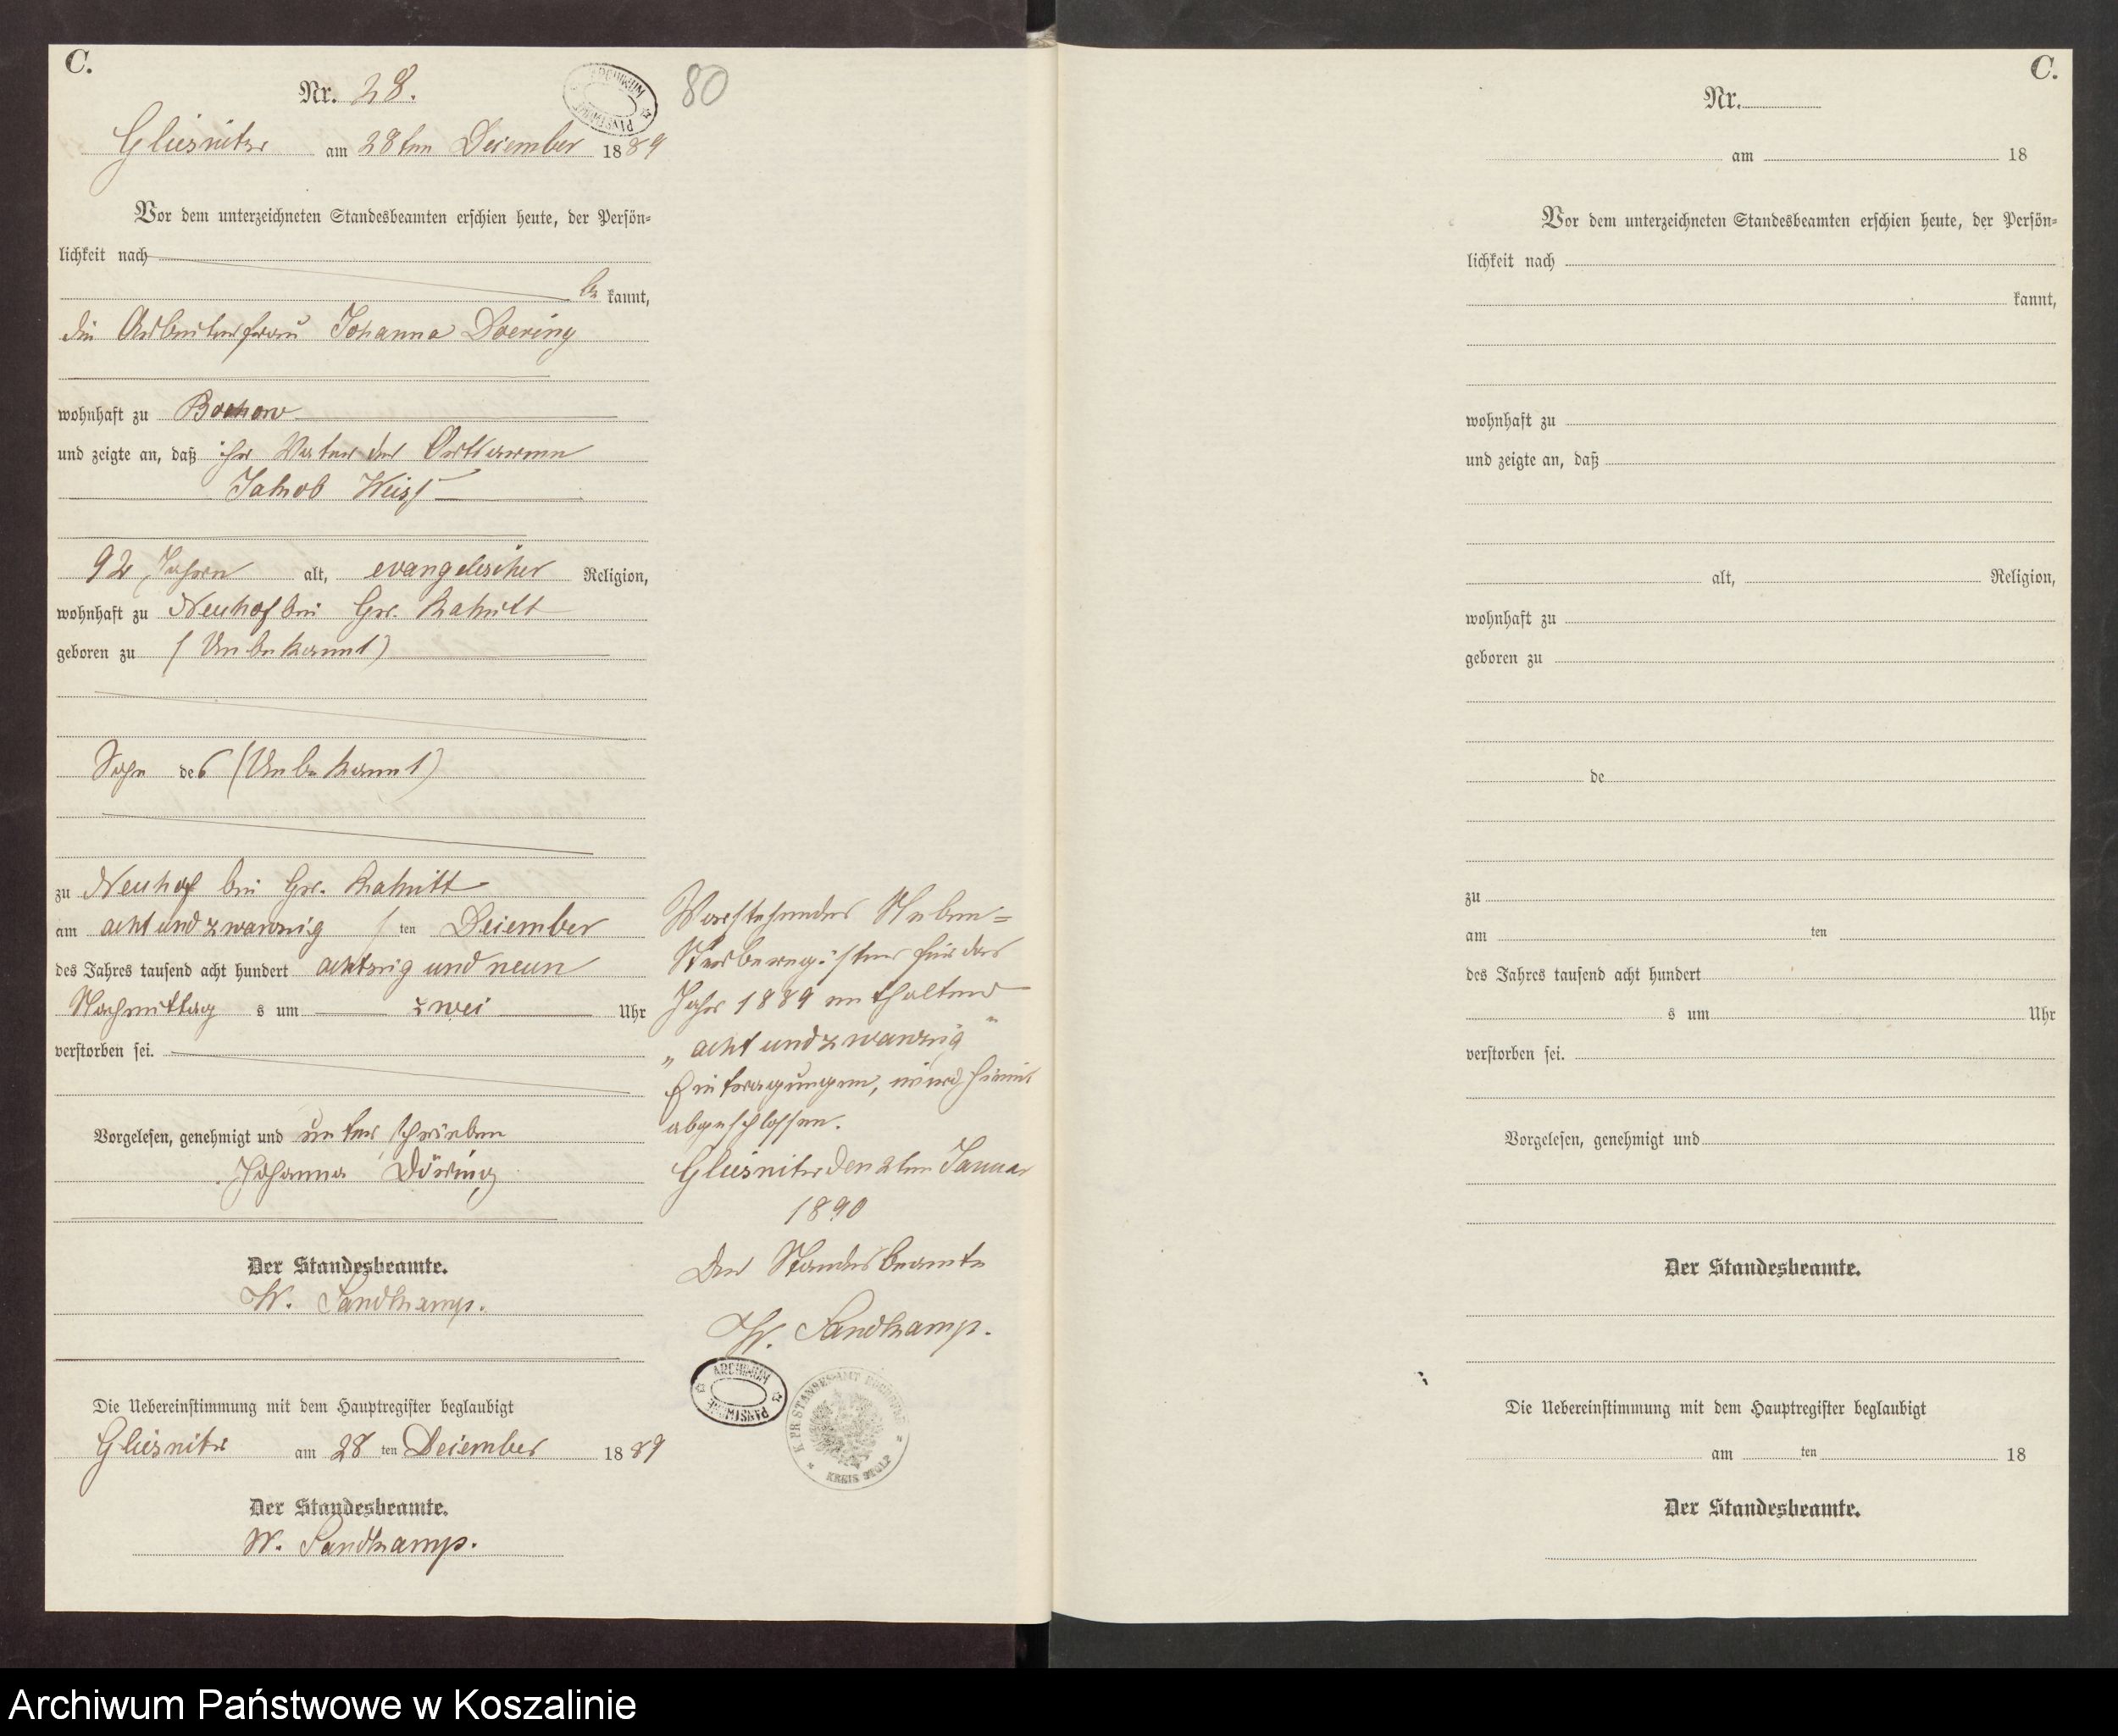 C.
Nr. 28.
80
ARCHIWUM PAŃSTWOWE
Gliesnitz am 28ten Dezember 1889
Vor dem unterzeichneten Standesbeamten erschien heute, der Persön-
lichkeit nach
be kannt,
die Arbeiterfrau Johanna Doering
wohnhaft zu Bochow
und zeigte an, daß ihr Vater der Ortsarme
Jakob Weiss
92 Jahren alt, evangelischer Religion,
wohnhaft zu Neuhof bei Gr. Rakitt
geboren zu (Unbekannt)
Sohn des (Unbekannt)
zu Neuhof bei Gr. Rakitt
am acht und zwanzig ten Dezember
des Jahres tausend acht hundert achtzig und neun
Nachmittag s um zwei Uhr
verstorben sei.
Vorgelesen, genehmigt und unterschrieben
Johanna Döring
Der Standesbeamte.
W. Sandkamp.
Die Uebereinstimmung mit dem Hauptregister beglaubigt
Gliesnitz am 28 ten Dezember 1889
Der Standesbeamte.
W. Sandkamp.
Vorstehendes Neben=
Sterberegister für das
Jahr 1889 enthaltend
„acht und zwanzig"
Eintragungen, wird hiermit
abgeschlossen.
Gliesnitz den 2ten Januar
1890
Der Standesbeamte
W. Sandkamp.
ARCHIWUM PAŃSTWOWE
K. PR. STANDESAMT
KREIS STOLP
C.
Nr.
am 18
Vor dem unterzeichneten Standesbeamten erschien heute, der Persön-
lichkeit nach
kannt,
wohnhaft zu
und zeigte an, daß
alt, Religion,
wohnhaft zu
geboren zu
de
zu
am ten
des Jahres tausend acht hundert
s um Uhr
verstorben sei.
Vorgelesen, genehmigt und
Der Standesbeamte.
Die Uebereinstimmung mit dem Hauptregister beglaubigt
am ten 18
Der Standesbeamte.
Archiwum Państwowe w Koszalinie